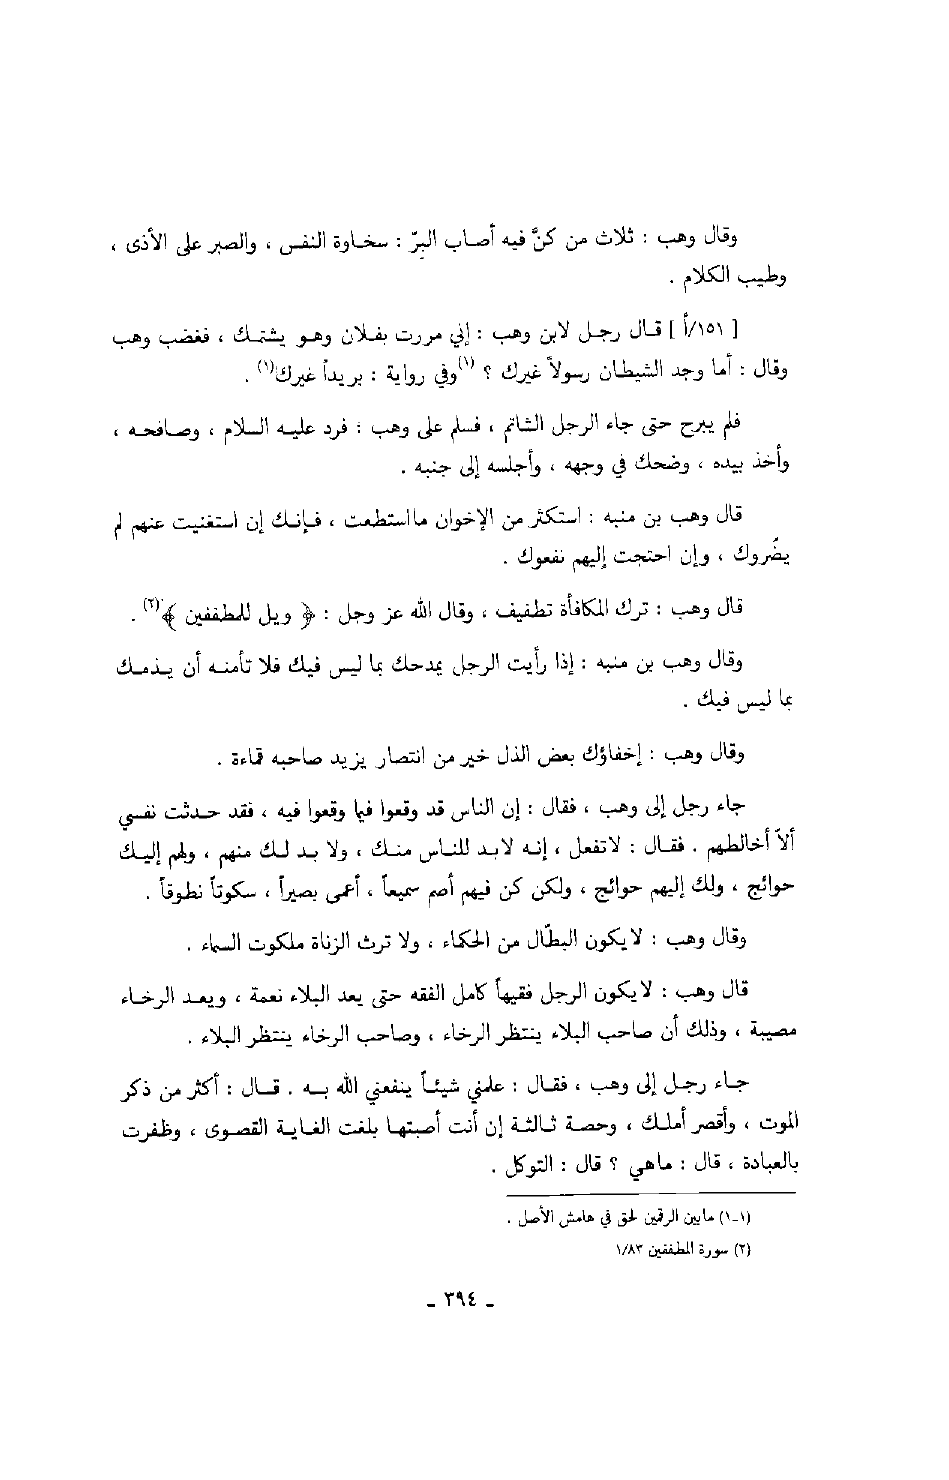 وقال وهب : ثلاث من كنَّ فيه أصاب البِرّ : سخاوة النفس ، والصبر على الأذى ،
وطيب الكلام .
[ ١٥١/أ ] قال رجل لابن وهب : إني مررت بفلان وهو يشتمك ، فغضب وهب
وقال : أما وجد الشيطان رسولاً غيرك ؟ (١)وفي رواية : بريداً غيرك(١) .
فلم يبرح حتى جاء الرجل الشاتم ، فسلم على وهب : فرد عليه السلام ، وصافحه ،
وأخذ بيده ، وضحك في وجهه ، وأجلسه إلى جنبه .
قال وهب بن منبه : استكثر من الإخوان مااستطعت ، فإنك إن استغنيت عنهم لم
يضُروك ، وإن احتجت إليهم نفعوك .
قال وهب : ترك المكافأة تطفيف ، وقال الله عز وجل : ﴿ ويل للمطففين ﴾(٢) .
وقال وهب بن منبه : إذا رأيت الرجل يمدحك بما ليس فيك فلا تأمنه أن يذمك
بما ليس فيك .
وقال وهب : إخفاؤك بعض الذل خير من انتصار يزيد صاحبه قماءة .
جاء رجل إلى وهب ، فقال : إن الناس قد وقعوا فيما وقعوا فيه ، فقد حدثت نفسي
ألاّ أخالطهم . فقال : لاتفعل ، إنه لابد للناس منك ، ولا بد لك منهم ، ولهم إليك
حوائج ، ولك إليهم حوائج ، ولكن كن فيهم أصم سميعاً ، أعمى بصيراً ، سكوتاً نطوقاً .
وقال وهب : لايكون البطّال من الحكماء ، ولا ترث الزناة ملكوت السماء .
قال وهب : لايكون الرجل فقيهاً كامل الفقه حتى يعد البلاء نعمة ، ويعد الرخاء
مصيبة ، وذلك أن صاحب البلاء ينتظر الرخاء ، وصاحب الرخاء ينتظر البلاء .
جاء رجل إلى وهب ، فقال : علمني شيئاً ينفعني الله به . قال : أكثر من ذكر
الموت ، وأقصر أملك ، وحصة ثالثة إن أنت أصبتها بلغت الغاية القصوى ، وظفرت
بالعبادة ، قال : ماهي ؟ قال : التوكل .
(١-١) مابين الرقمين لحق في هامش الأصل .
(٢) سورة المطففين ١/٨٣
- ٣٩٤ -